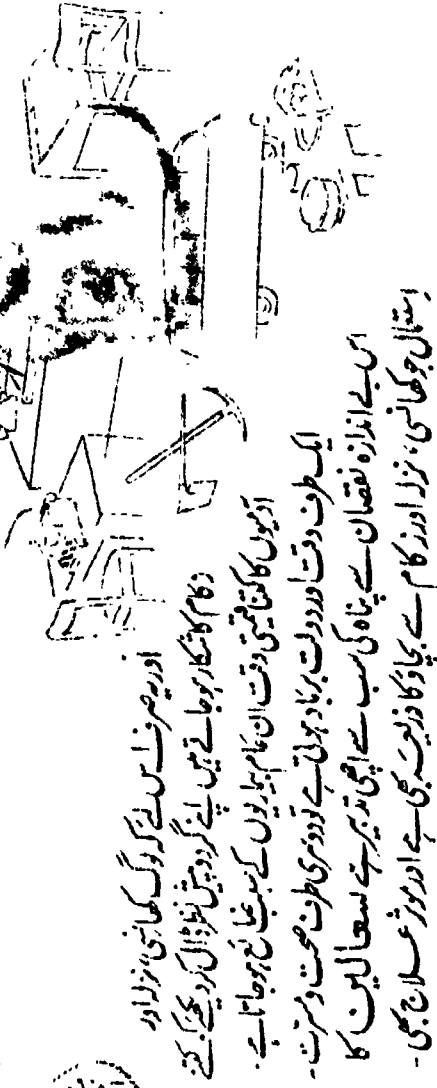 اور یہ صرف اس لئے کہ لوگ کھانسی، نزلہ اور
زکام کا شکار ہو جاتے ہیں اپنے گردوپیش نظر ڈال کر دیکھئے کہ کتنے
آدمیوں کا کتنا قیمتی وقت ان عام بیماریوں کے سبب ضائع ہو جاتا ہے۔
ایک طرف وقت اور دولت برباد ہوتی ہے تو دوسری طرف صحت و مسرت۔
اس بے اندازہ نقصان سے پناہ کی سب سے اچھی تدبیر ہے سعالین کا
استعمال جو کھانسی، نزلہ اور زکام سے بچاؤ کا ذریعہ بھی ہے اور موثر علاج بھی۔